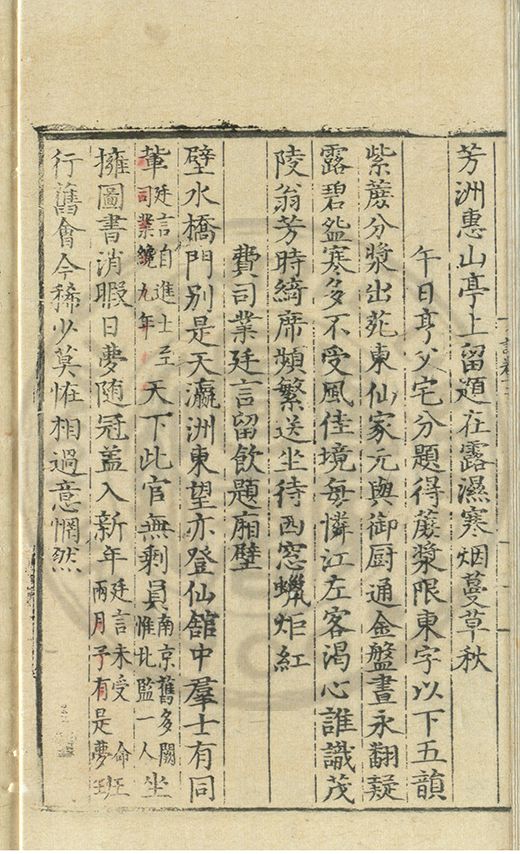 芳洲惠山亭上留題在露濕寒烟蔓草秋
午日亨父宅分題得蔗漿限東字以下五韻
紫蔗分漿出苑東仙家元與御厨通金盤晝永翻疑
露碧盌寒多不受風佳境每憐江左客渴心誰識茂
陵翁芳時綺席頻繁送坐待西窓蠟炬紅
費司業廷言留飲題廂壁
壁水橋門别是天瀛洲東望亦登仙舘中羣士有同
軰廷言自進士至司業纔九年天下此官無剩員南京舊多闕惟此監一人坐
擁圖書消暇日夢随冠盖入新年廷言未受命兩月予有是夢班
行舊會今稀少莫恠相過意惘然